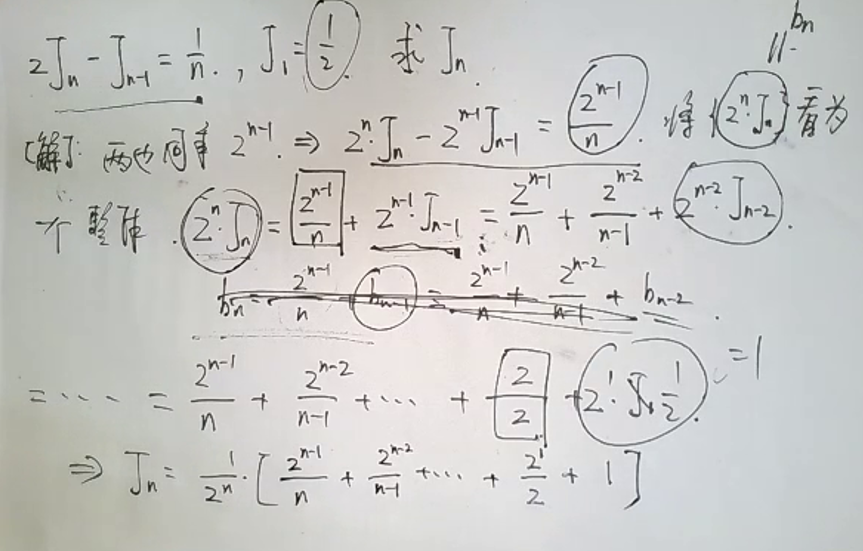 2J_n - J_{n-1} = 1/n. , J_1 = 1/2. 求 J_n.
b_n
[解]: 两边同乘 2^{n-1}. ⇒ 2^n·J_n - 2^{n-1}J_{n-1} = 2^{n-1}/n. 将 {2^n·J_n} 看为
个整体. 2^n·J_n = 2^{n-1}/n + 2^{n-1}·J_{n-1} = 2^{n-1}/n + 2^{n-2}/(n-1) + 2^{n-2}·J_{n-2}.
b_n = 2^{n-1}/n + b_{n-1} = 2^{n-1}/n + 2^{n-2}/(n-1) + b_{n-2}.
= ⋯ = 2^{n-1}/n + 2^{n-2}/(n-1) + ⋯ + 2/2 + 2^1·J_1 1/2. = 1
⇒ J_n = 1/2^n·[2^{n-1}/n + 2^{n-2}/(n-1) + ⋯ + 2^1/2 + 1]